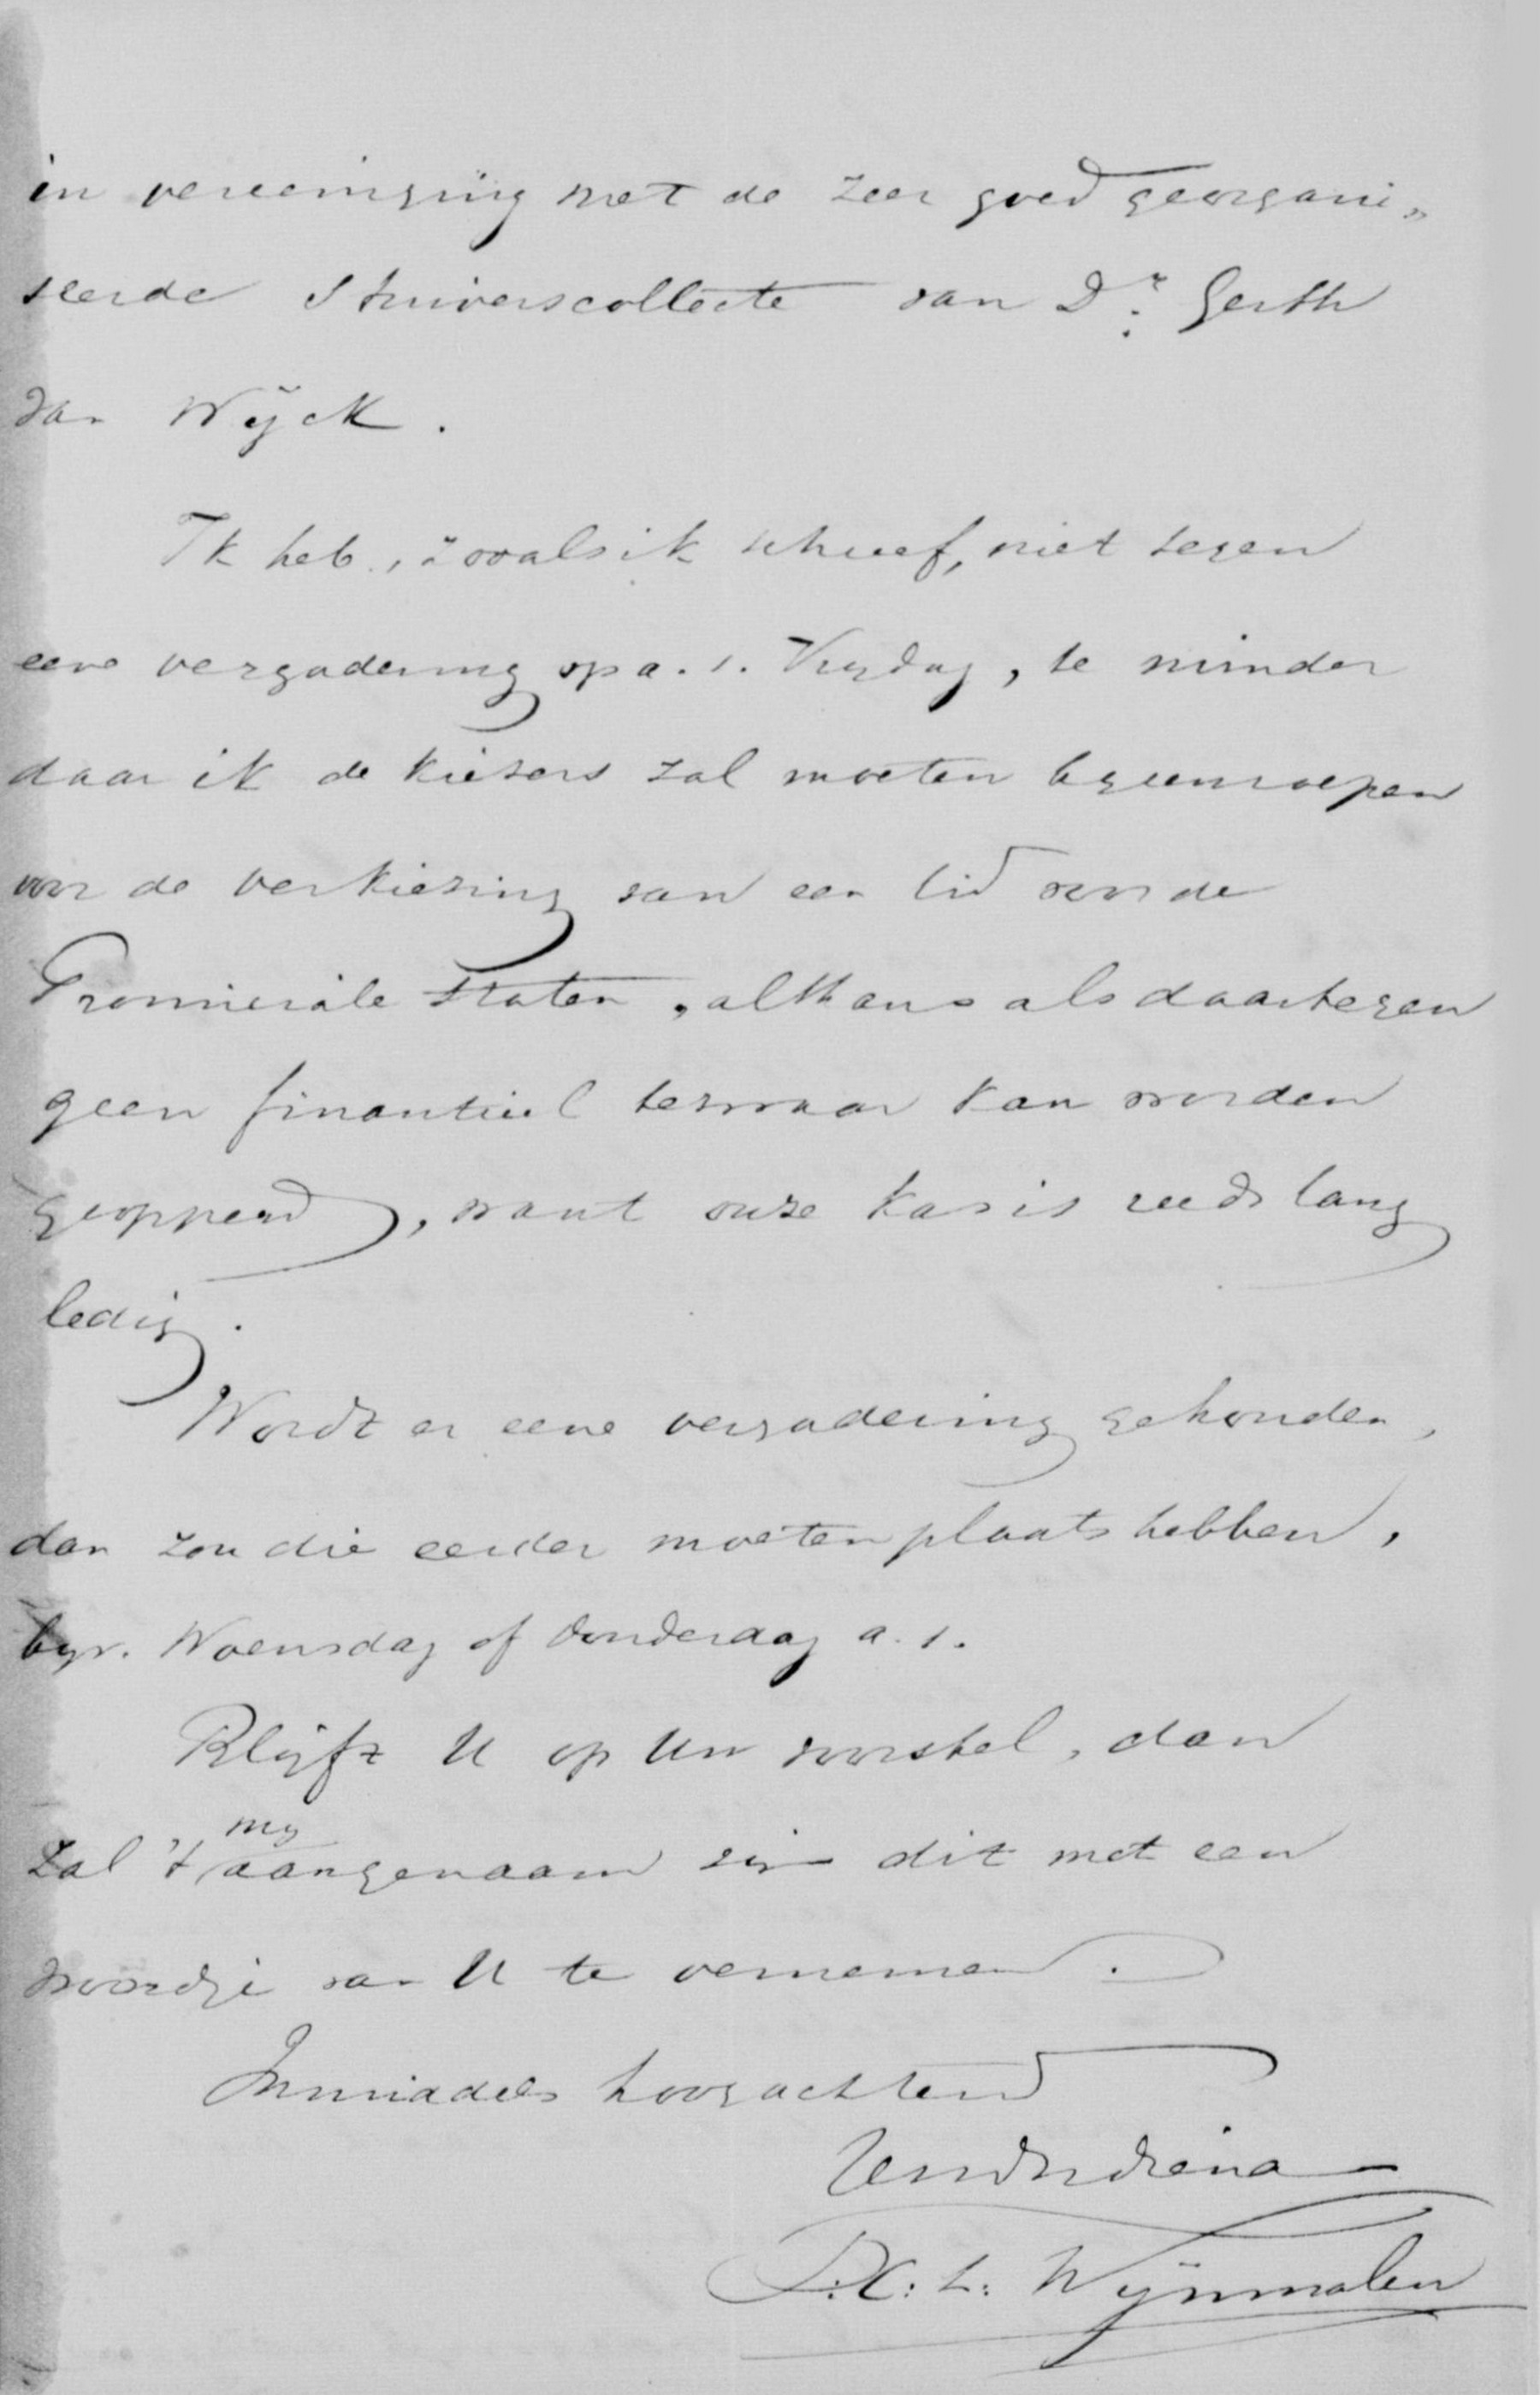 in vereeniging met de zeer goed georgani„
seerde Stuiverscollecte van Dr. Gerth
van Wijck.
Ik heb, zooals ik schreef, niet tegen
eene vergadering op a. s. Vrydag, te minder
daar ik de kiezers zal moeten byeenroepen
voor de verkiezing van een lid voor de
Provinciale Staten, althans als daartegen
geen financieel bezwaar kan worden
geopperd, want onze kas is reeds lang
ledig.
Wordt er eene vergadering gehouden,
dan zou die eerder moeten plaats hebben,
byv. Woensdag of Donderdag a. s.
Blijft U op Uw voorstel, dan
zal 't my aangenaam zijn dit met een
woordje van U te vernemen.
Inmiddels hoogachtend
Uw dw diena
T.C.L. Wijnmalen